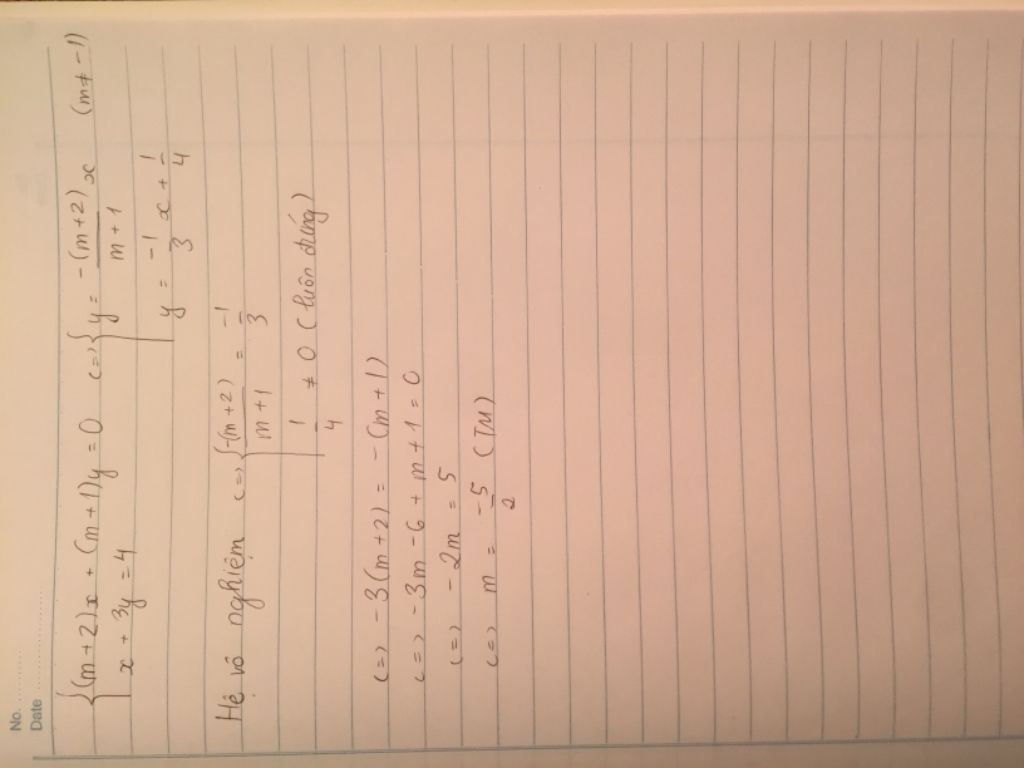 No. ............
Date ....................
{(m+2)x + (m+1)y = 0 <=> {y = -(m+2)/(m+1) x (m ≠ -1)
x + 3y = 4 y = -1/3 x + 1/4
Hệ vô nghiệm <=> {-(m+2)/(m+1) = -1/3
1/4 ≠ 0 (luôn đúng)
<=> -3(m+2) = -(m+1)
<=> -3m - 6 + m + 1 = 0
<=> -2m = 5
<=> m = -5/2 (TM)